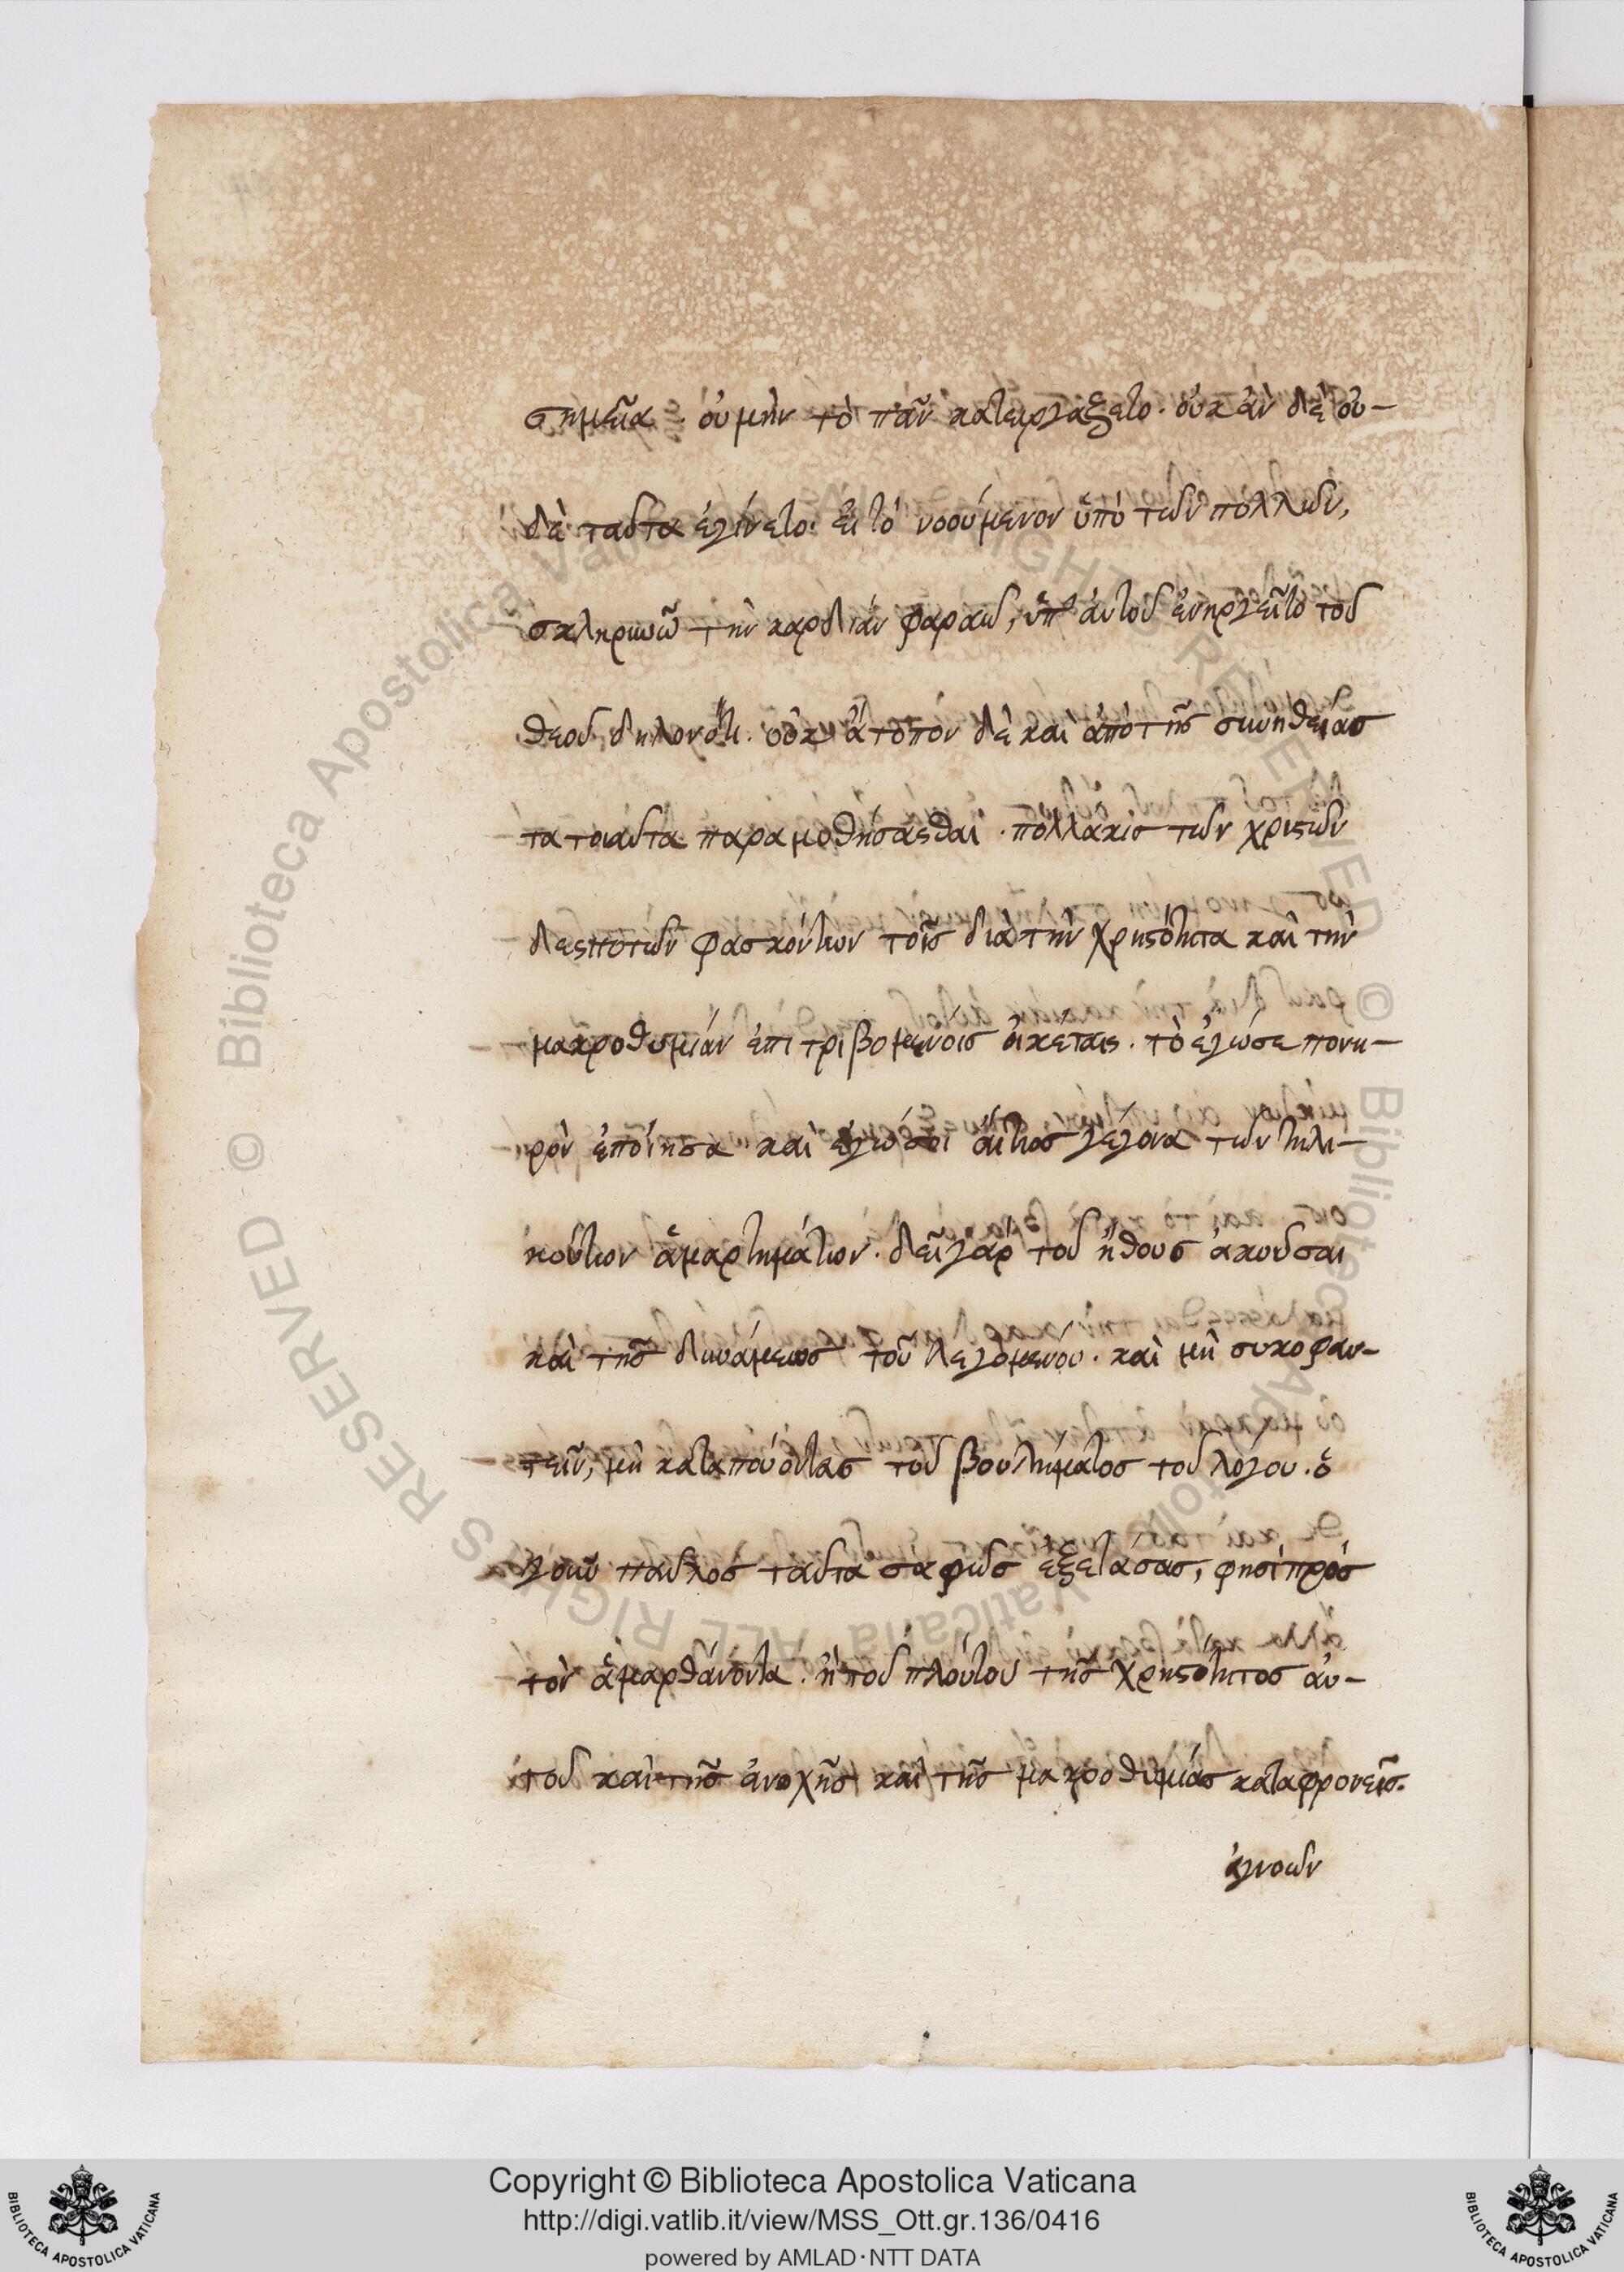 σημεῖα. οὐ μὴν τὸ πᾶν κατειργάζετο. οὐκ ἂν δὲ οὐ-
δὲ ταῦτα ἐγίνετο. εἰ τὸ νοούμενον ὑπὸ τῶν πολλῶν,
σκληρυνῶ τὴν καρδίαν φαραώ, ὑπ' αὐτοῦ ἐνηργεῖτο τοῦ
θεοῦ δηλονότι. οὐκ ἄτοπον δὲ καὶ ἀπὸ τῆς συνηθείας
τὰ τοιαῦτα παραμυθήσασθαι. πολλάκις τῶν χρηστῶν
δεσποτῶν φασκόντων τοῖς διὰ τὴν χρηστότητα καὶ τὴν
μακροθυμίαν ἐπιτριβομένοις οἰκέταις. τὸ ἐγώ σε πονη-
ρὸν ἐποίησα. καὶ ἐγώ σοι αἴτιος γέγονα τῶν τηλι-
κούτων ἁμαρτημάτων. δεῖ γὰρ τοῦ ἤθους ἀκοῦσαι
καὶ τῆς δυνάμεως τοῦ λεγομένου. καὶ μὴ συκοφαν-
τεῖν, μὴ κατακούοντας τοῦ βουλήματος τοῦ λόγου. ὁ
γοῦν παῦλος ταῦτα σαφῶς ἐξετάσας, φησὶ πρὸς
τὸν ἁμαρθάνοντα. ἢ τοῦ πλούτου τῆς χρηστότητος αὐ-
τοῦ καὶ τῆς ἀνοχῆς καὶ τῆς μακροθυμίας καταφρονεῖς.
ἀγνοῶν
Copyright © Biblioteca Apostolica Vaticana
http://digi.vatlib.it/view/MSS_Ott.gr.136/0416
powered by AMLAD·NTT DATA
© Biblioteca Apostolica Vaticana ALL RIGHTS RESERVED
BIBLIOTECA APOSTOLICA VATICANA
BIBLIOTECA APOSTOLICA VATICANA